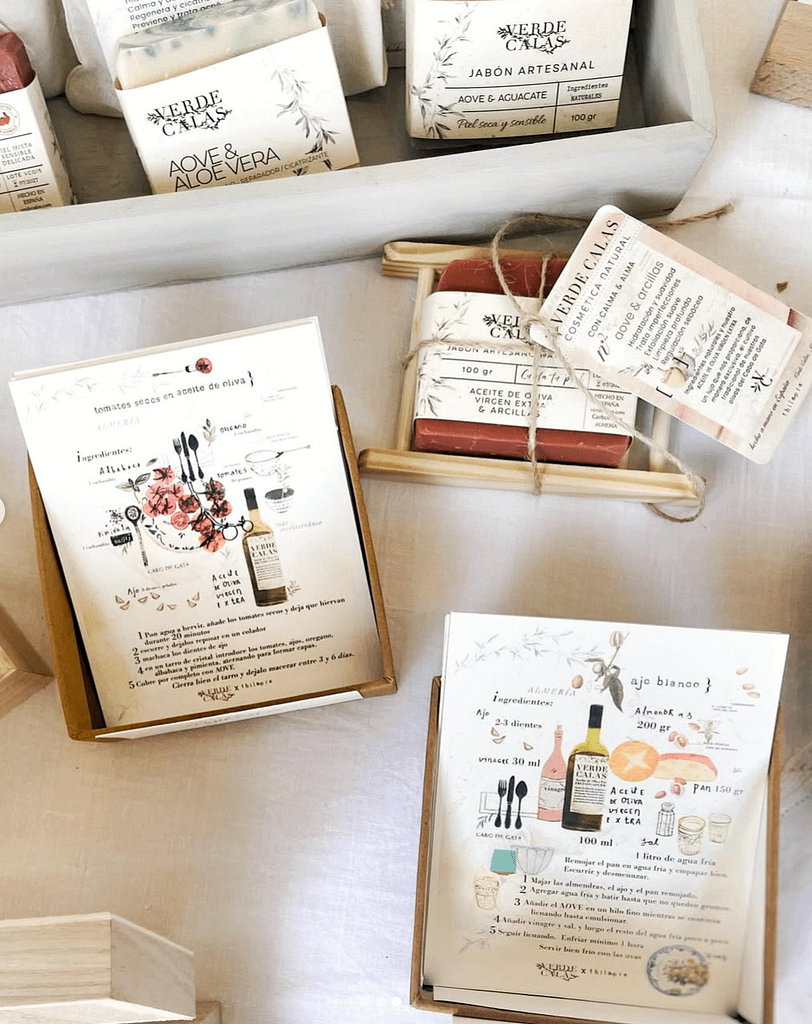 Calma y
Regenera y cicatriza
Previene y trata acné
VERDE
CALAS
AOVE &
ALOE VERA
REPARADOR / CICATRIZANTE
VERDE
CALAS
JABÓN ARTESANAL
AOVE & AGUACATE
Ingredientes
NATURALES
Piel seca y sensible
100 gr
MIXTA
SENSIBLE
DELICADA
LOTE
HECHO EN
ESPAÑA
VERDE CALAS
COSMÉTICA NATURAL
CON CALMA & ALMA
aove & arcillas
Hidratación y suavidad
Trata imperfecciones
Exfoliación suave
Limpieza profunda
Regulación sebácea
Ingredientes naturales y nuestro
ACEITE DE OLIVA VIRGEN EXTRA
Un lujo que nos proporciona, de
manera exclusiva, el cultivo
tradicional de nuestros
olivos del Cabo de Gata
hecho a mano en España
JABÓN ARTESANAL
100 gr
ACEITE DE OLIVA
VIRGEN EXTRA
& ARCILLAS
HECHO EN
ESPAÑA
ALMERÍA
tomates secos en aceite de oliva}
ALMERÍA
ingredientes:
Albahaca
OREGANO
tomates
Pimienta
mar
mediterráneo
VERDE
CALAS
CABO DE GATA
Ajo
ACEITE
DE OLIVA
VIRGEN
EXTRA
1 Pon agua a hervir, añade los tomates secos y deja que hiervan
durante 20 minutos
2 escurre y déjalos reposar en un colador
3 machaca los dientes de ajo
4 en un tarro de cristal introduce los tomates, ajos, oregano,
albahaca y pimienta, alternando para formar capas.
5 Cubre por completo con AOVE
Cierra bien el tarro y dejalo macerar entre 3 y 6 días.
VERDE
CALAS x thilopia
ajo blanco }
ALMERÍA
ingredientes:
Ajo
2-3 dientes
Almendras
200 gr
vinagre 30 ml
vinagre
VERDE
CALAS
pan 150 gr
ACEITE
DE OLIVA
VIRGEN
EXTRA
CABO DE GATA
100 ml
sal
1 litro de agua fría
Remojar el pan en agua fría y empapar bien.
Escurrir y desmenuzar.
1 Majar las almendras, el ajo y el pan remojado.
2 Agregar agua fría y batir hasta que no queden grumos.
3 Añadir el AOVE en un hilo fino mientras se continúa
licuando hasta emulsionar.
4 Añadir vinagre y sal, y luego el resto del agua fría poco a poco
5 Seguir licuando. Enfriar mínimo 1 hora
Servir bien frío con las uvas
VERDE
CALAS x thilopia